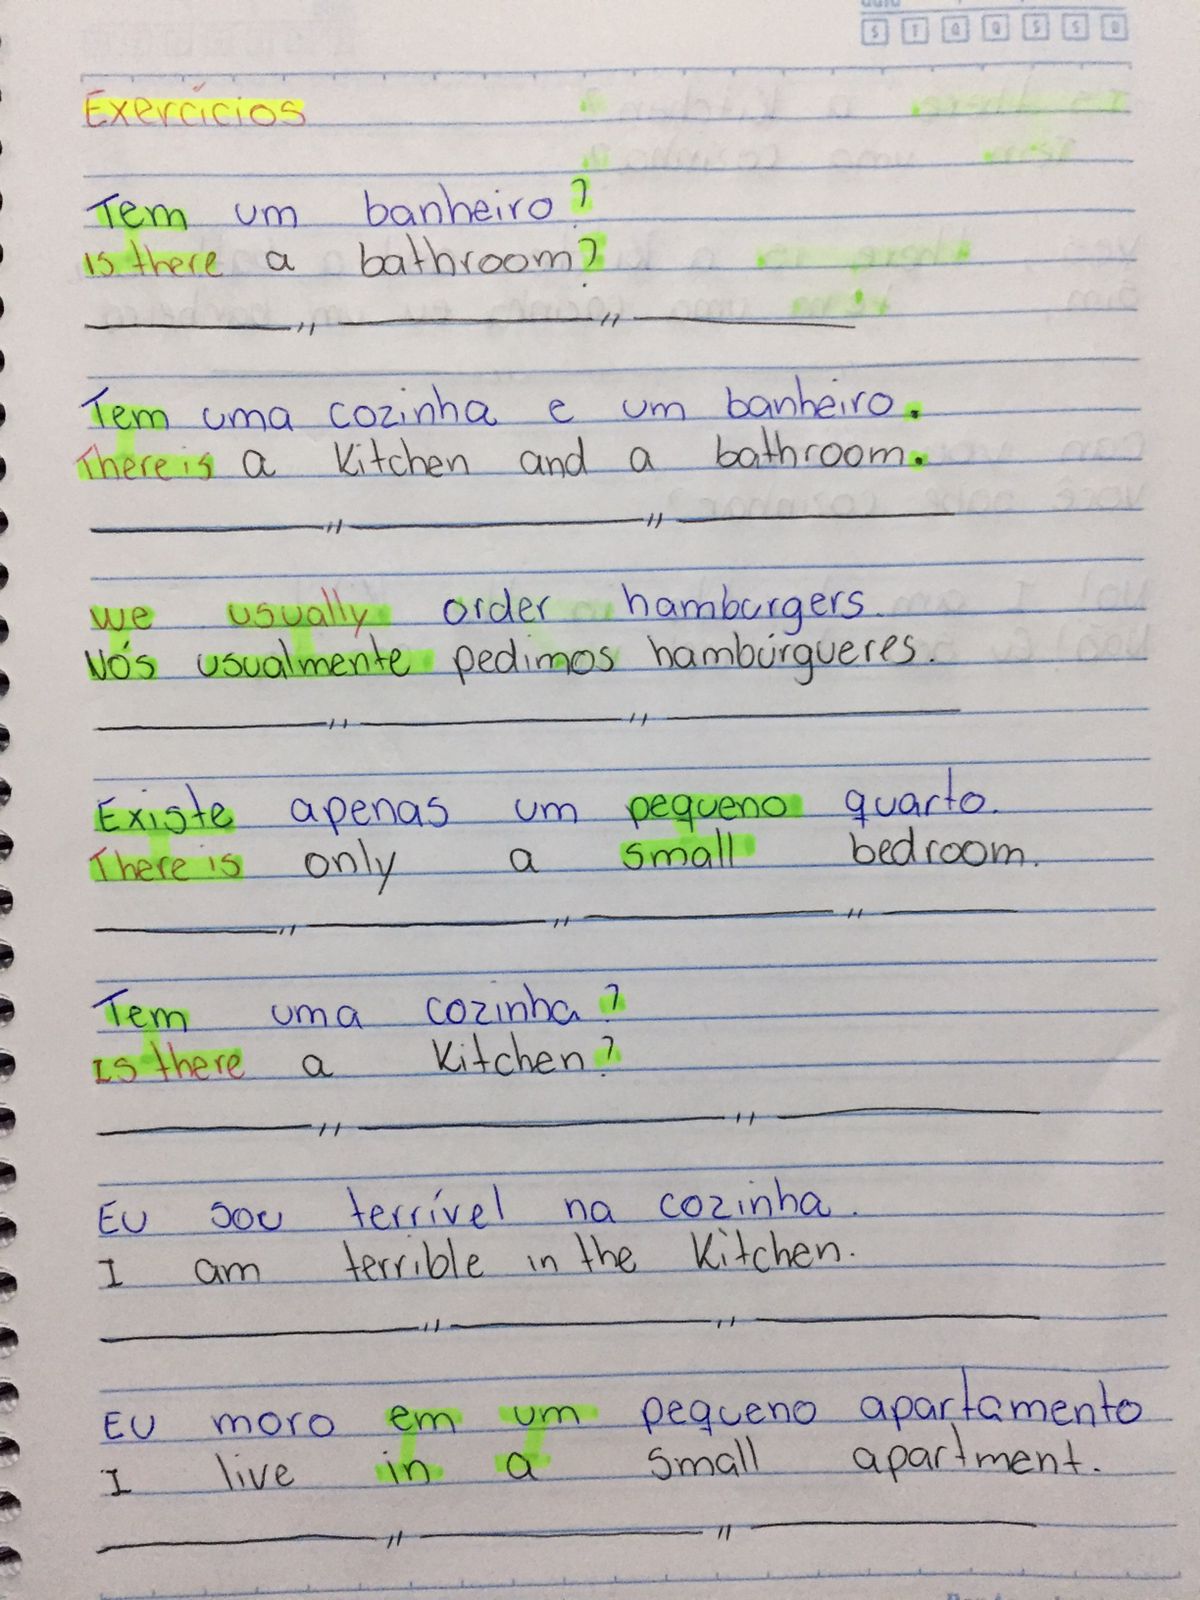 S T Q Q S S D
Exercícios
Tem um banheiro?
Is there a bathroom?
Tem uma cozinha e um banheiro.
There is a kitchen and a bathroom.
We usually order hamburgers.
Nós usualmente pedimos hambúrgueres.
Existe apenas um pequeno quarto.
There is only a small bedroom.
Tem uma cozinha?
Is there a kitchen?
Eu sou terrível na cozinha.
I am terrible in the kitchen.
Eu moro em um pequeno apartamento
I live in a small apartment.